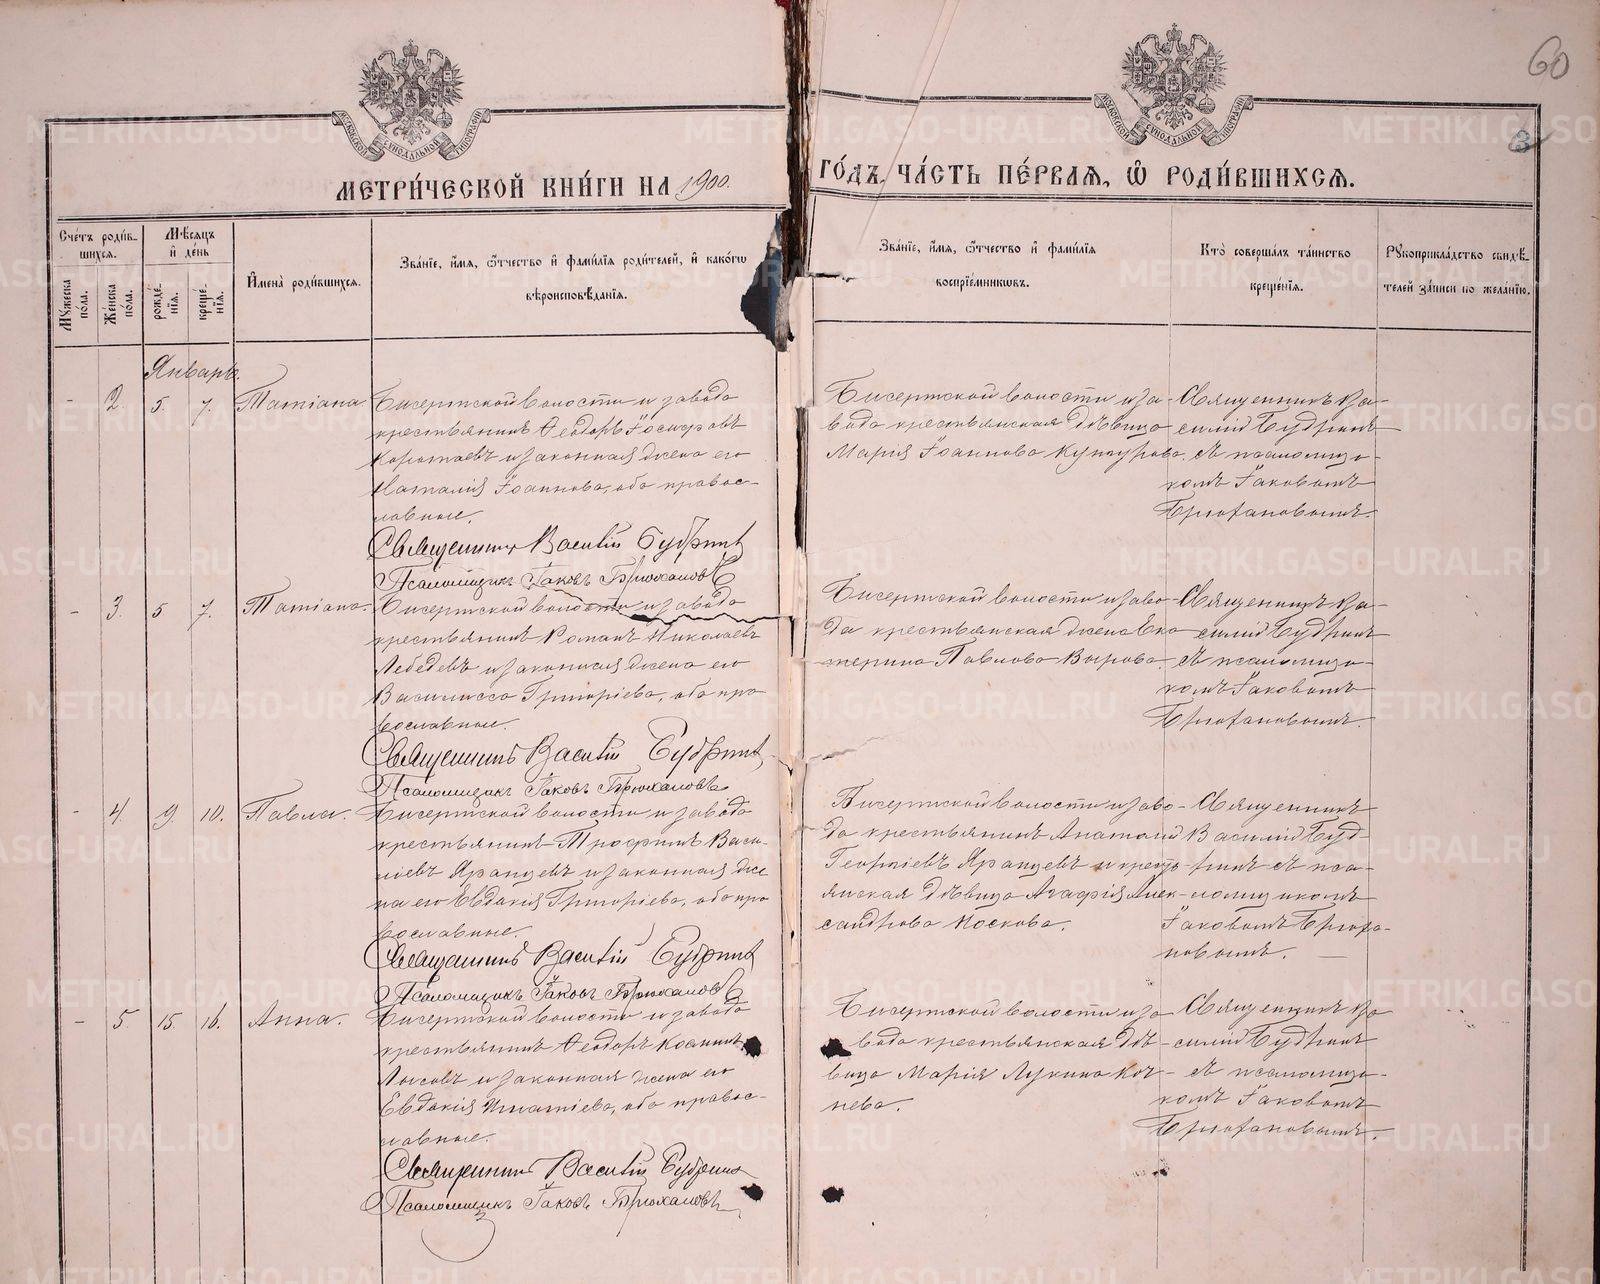 60
3
МЕТРИ́ЧЕСКОЙ КНИ́ГИ НА 1900. ГО́ДЪ, ЧА́СТЬ ПЕ́РВАЯ, Ѡ҆ РОДИ́ВШИХСЯ.
Сче́тъ роди́в-
шихся.
Му́жеска по́ла.
Же́нска по́ла.
Мѣ́сяцъ и҆ де́нь
рожде́-
нїя.
креще́-
нїя.
И҆мена̀ роди́вшихся.
Зва́нїе, и҆́мя, ѻ҆́тчество и҆ фами́лїя роди́телей, и҆ како́гѡ
вѣроисповѣ́данїя.
Зва́нїе, и҆́мя, ѻ҆́тчество и҆ фами́лїя
воспрїе́мниковъ.
Кто̀ соверша́лъ та́инство
креще́нїя.
Рꙋкоприкла́дство свидѣ́-
телей за́писи по жела́нїю.
Январь.
- 2. 5. 7. Татіана
Бисертской волости и завода
крестьянинъ Ѳеодоръ Іосифовъ
Коротаевъ и законная жена его
Наталія Іоаннова, оба правос-
лавные.
Священникъ Василій Будринъ
Псаломщикъ Іаковъ Брюхановъ
Бисертской волости и за-
вода крестьянская дѣвица
Марія Іоаннова
Священникъ Ва-
силій Будринъ
съ псаломщи-
комъ Іаковомъ
Брюхановымъ.
- 3. 5 7. Татіана.
Бисертской волости и завода
крестьянинъ Романъ Николаевъ
Лебедевъ и законная жена его
Василисса Григоріева, оба пра
вославные.
Священникъ Василій Будринъ
Псаломщикъ Іаковъ Брюхановъ
Бисертской волости и заво-
да крестьянская жена Ека
терина Павлова
Священникъ Ва-
силій Будринъ
съ псаломщи-
комъ Іаковомъ
Брюхановымъ.
- 4. 9. 10. Павла.
Бисертской волости и завода
крестьянинъ Трофимъ Васи-
ліевъ Яранцевъ и законная же
на его Евдокія Григоріева, оба пра
вославные.
Священникъ Василій Будринъ
Псаломщикъ Іаковъ Брюхановъ
Бисертской волости и заво-
да крестьянинъ Анатолій
Георгіевъ Яранцевъ и кресть-
янская дѣвица Агафія Алек-
сандрова Носкова.
Священникъ
Василій Буд-
ринъ съ пса-
ломщикомъ
Іаковомъ Брюха-
новымъ.
- 5. 15. 16. Анна.
Бисертской волости и завода
крестьянинъ Ѳеодоръ
и законная жена его
Евдокія Игнатіева, оба правос-
лавные.
Священникъ Василій Будринъ
Псаломщикъ Іаковъ Брюхановъ
Бисертской волости и за
вода крестьянская дѣ-
вица Марія Лукина Коч-
нева.
Священникъ Ва
силій Будринъ
съ псаломщи-
комъ Іаковомъ
Брюхановымъ.
METRIKI.GASO-URAL.RU